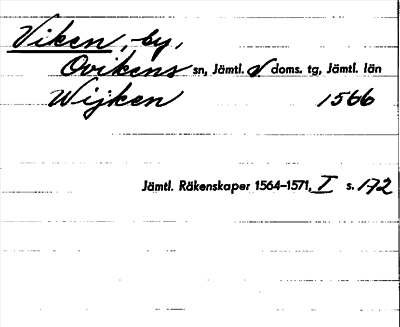 Viken, by,
Ovikens sn, Jämtl. v doms. tg, Jämtl. län
Wijken 1566
Jämtl. Räkenskaper 1564–1571, I s. 172